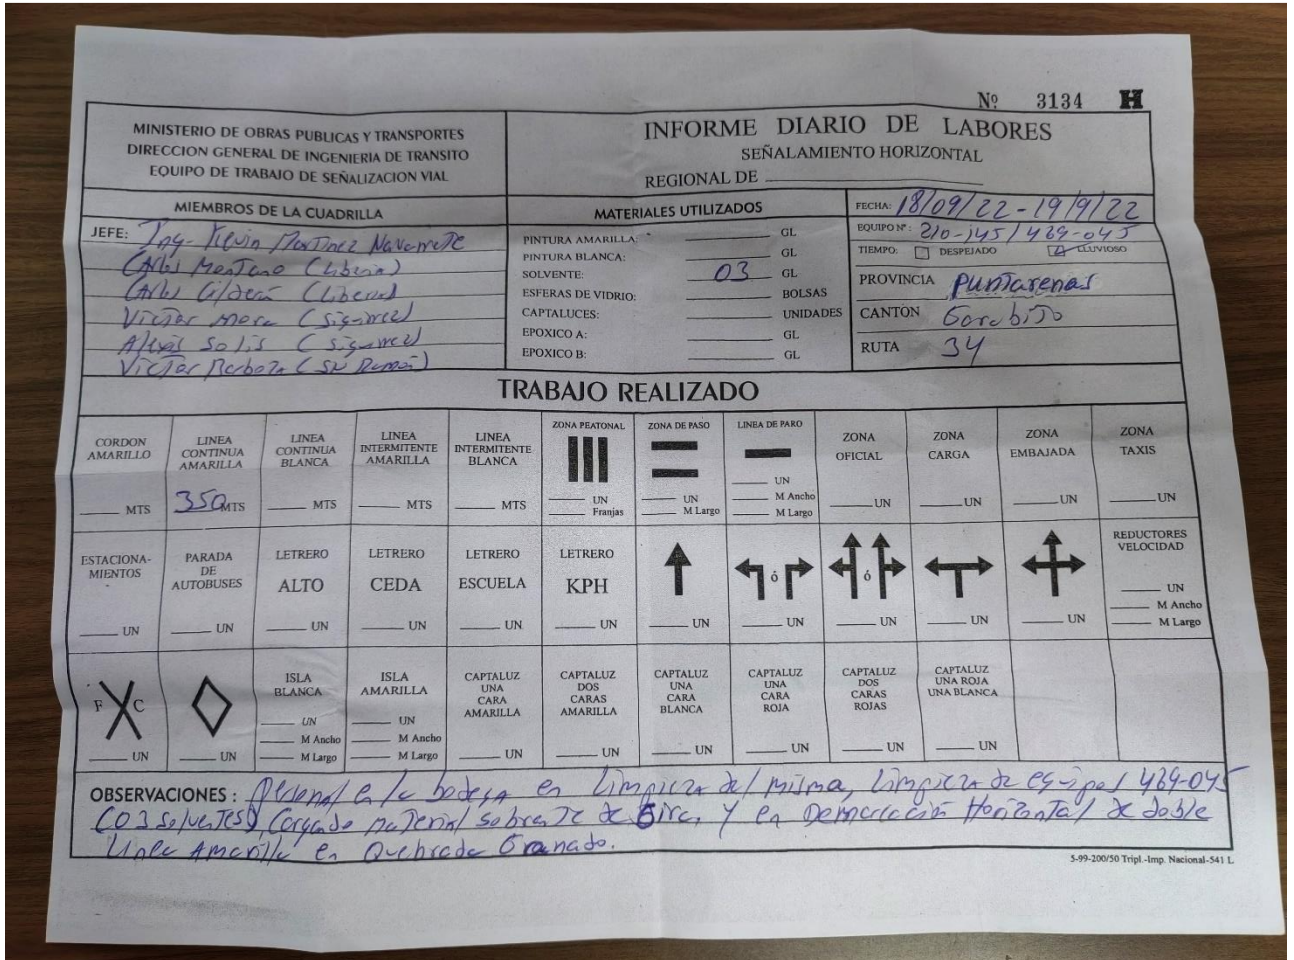 Nº 3134 H
MINISTERIO DE OBRAS PUBLICAS Y TRANSPORTES
DIRECCION GENERAL DE INGENIERIA DE TRANSITO
EQUIPO DE TRABAJO DE SEÑALIZACION VIAL
INFORME DIARIO DE LABORES
SEÑALAMIENTO HORIZONTAL
REGIONAL DE
MIEMBROS DE LA CUADRILLA
JEFE: Ing. Kevin Martinez Navarrete
Carlos Montano (Liberia)
Carlos Calderón (Liberia)
Victor Mora (Siquirres)
Alexis Solis (Siquirres)
Victor Barboza (Sn Ramón)
MATERIALES UTILIZADOS
PINTURA AMARILLA: GL
PINTURA BLANCA: GL
SOLVENTE: 03 GL
ESFERAS DE VIDRIO: BOLSAS
CAPTALUCES: UNIDADES
EPOXICO A: GL
EPOXICO B: GL
FECHA: 18/09/22-19/9/22
EQUIPO Nº: 210-145/469-045
TIEMPO: DESPEJADO LLUVIOSO
PROVINCIA Puntarenas
CANTON Garabito
RUTA 34
TRABAJO REALIZADO
CORDON AMARILLO
MTS
LINEA CONTINUA AMARILLA
350 MTS
LINEA CONTINUA BLANCA
MTS
LINEA INTERMITENTE AMARILLA
MTS
LINEA INTERMITENTE BLANCA
MTS
ZONA PEATONAL
UN
Franjas
ZONA DE PASO
UN
M Largo
LINEA DE PARO
UN
M Ancho
M Largo
ZONA OFICIAL
UN
ZONA CARGA
UN
ZONA EMBAJADA
UN
ZONA TAXIS
UN
ESTACIONA-
MIENTOS
UN
PARADA DE AUTOBUSES
UN
LETRERO ALTO
UN
LETRERO CEDA
UN
LETRERO ESCUELA
UN
LETRERO KPH
UN
UN
ó
UN
ó
UN
UN
UN
REDUCTORES VELOCIDAD
UN
M Ancho
M Largo
F C
UN
UN
ISLA BLANCA
UN
M Ancho
M Largo
ISLA AMARILLA
UN
M Ancho
M Largo
CAPTALUZ UNA CARA AMARILLA
UN
CAPTALUZ DOS CARAS AMARILLA
UN
CAPTALUZ UNA CARA BLANCA
UN
CAPTALUZ UNA CARA ROJA
UN
CAPTALUZ DOS CARAS ROJAS
UN
CAPTALUZ UNA ROJA UNA BLANCA
UN
OBSERVACIONES: Personal en la bodega en Limpieza del misma, Limpieza de equipos 469-045
(03 solventes), Cargando material sobrante de Gira, y en Demarcación Horizontal de doble
Linea Amarilla en Quebrada Granado.
5-99-200/50 Tripl.-Imp. Nacional-541 L